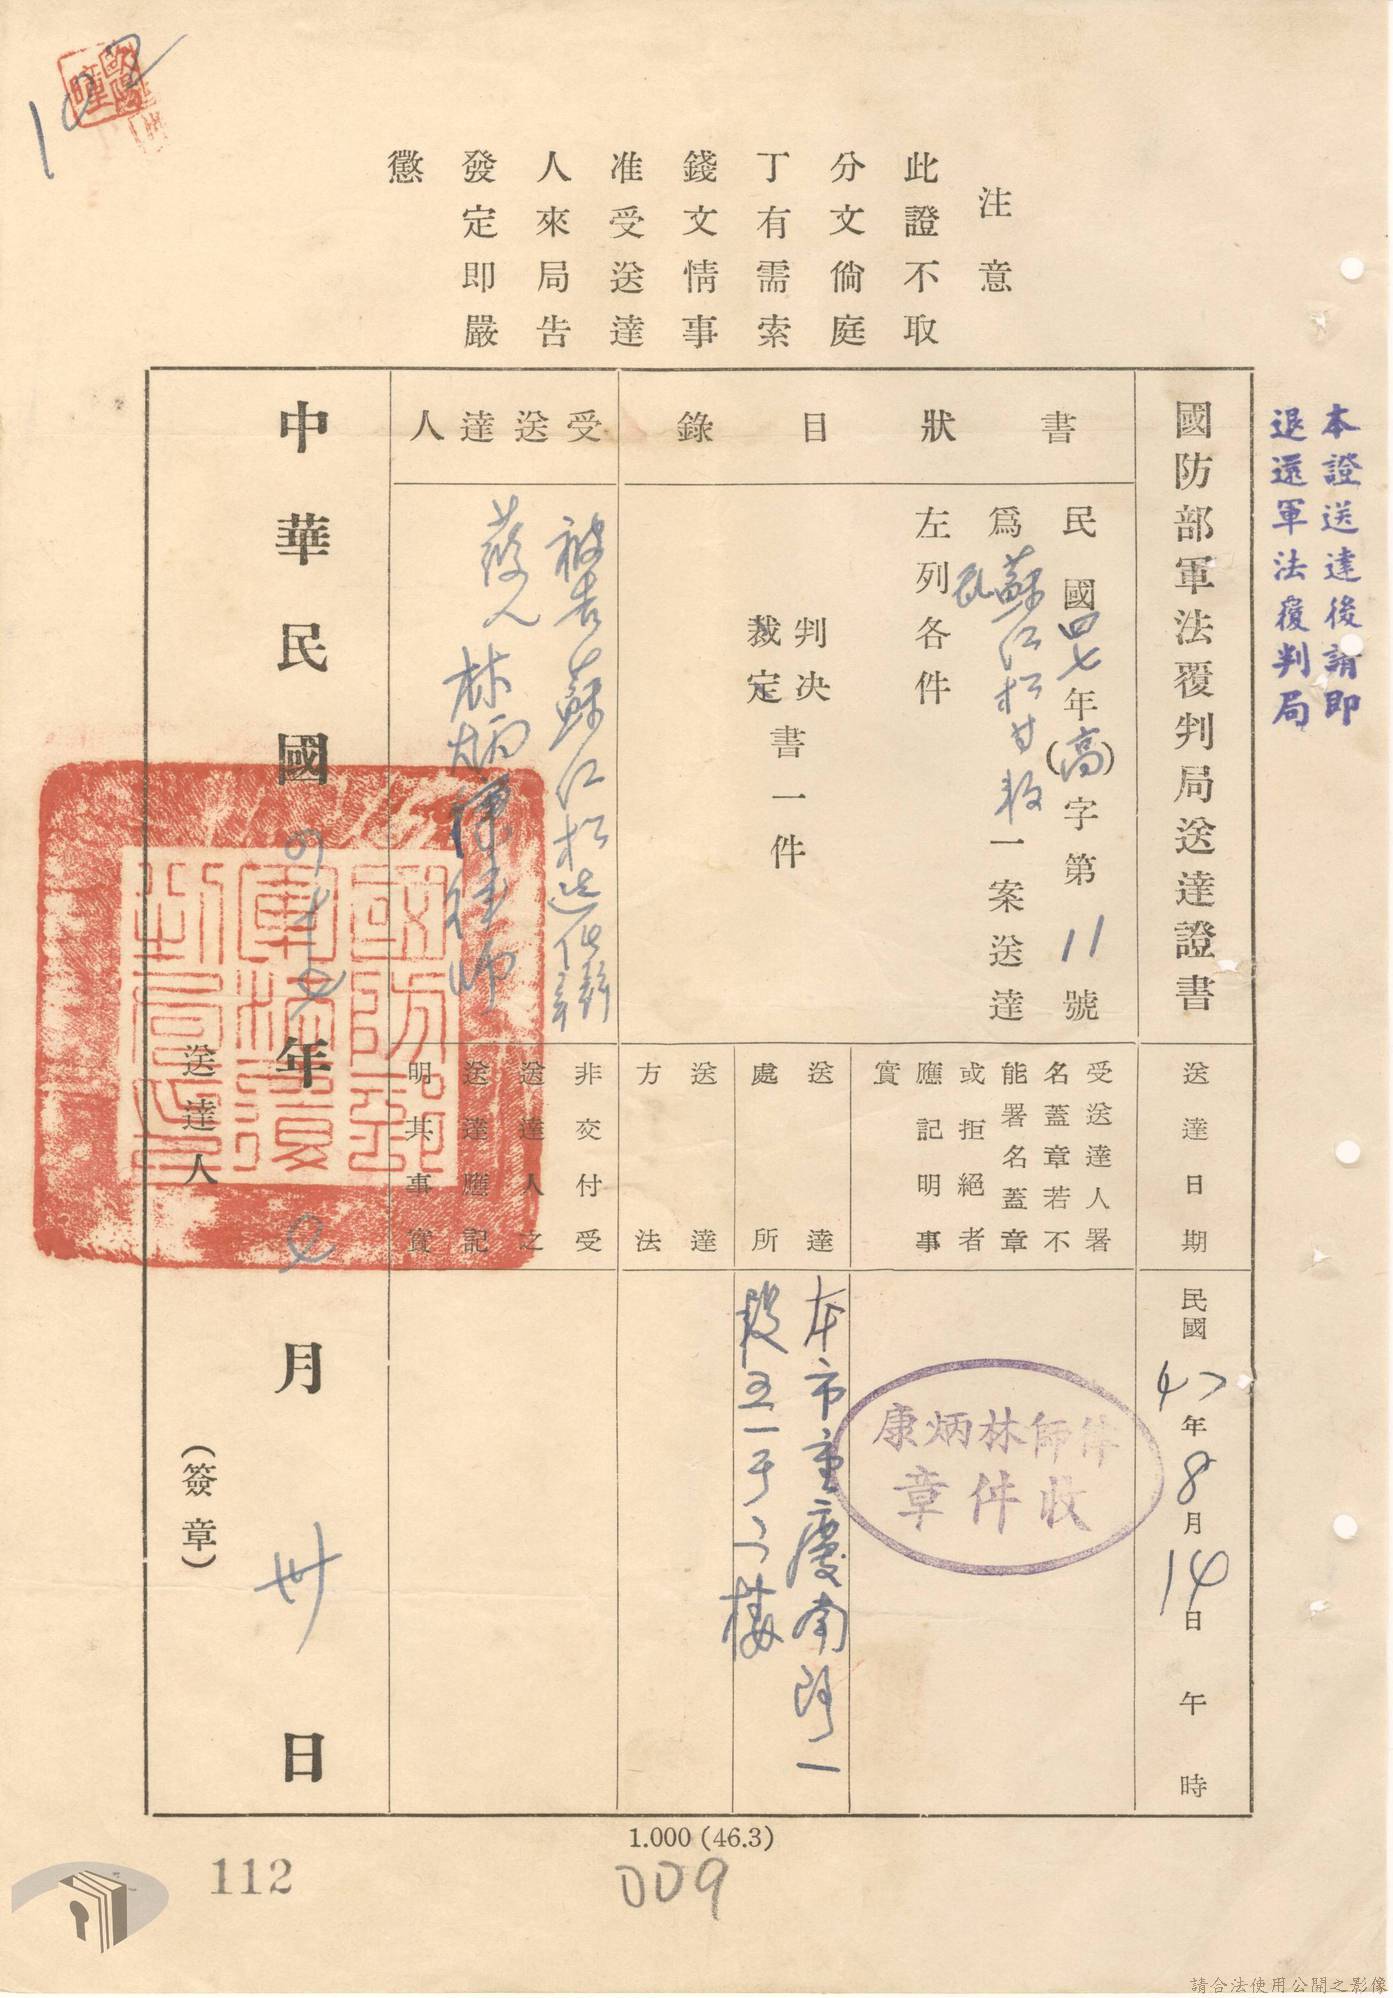 102
注意
此證不取
分文倘庭
丁有需索
錢文情事
准受送達
人來局告
發定即嚴
懲
本證送達後請即
退還軍法覆判局
國防部軍法覆判局送達證書
書狀目錄
民國四七年(高)字第11號
為蘇江松甘教一案送達
左列各件
判決
裁定
書一件
受送達人
被告蘇江松選任辯
護人林炳康律師
送達日期
民國47年8月14日午時
受送達人署
名蓋章若不
能署名蓋章
或拒絕者
應記明事
實
律師林炳康
收件章
送達
處所
本市重慶南路一
段五一号二樓
送達
方法
非交付受
送達人之
送達應記
明其事實
中華民國四十七年七月卅日
送達人(簽章)
國防部
軍法覆
判局印
1.000(46.3)
112
009
請合法使用公開之影像